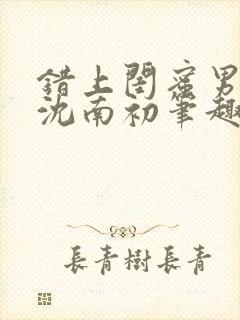 错上闺蜜男
沈南初筆趣
長青樹長青